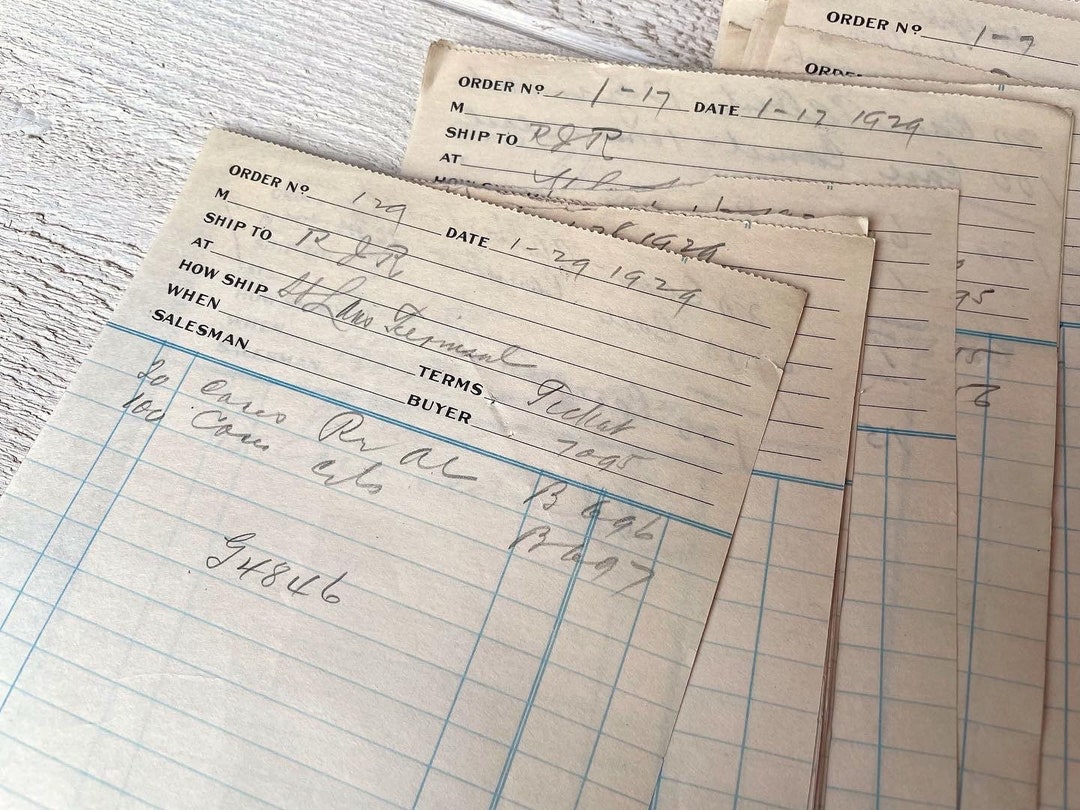 ORDER Nº 1-7
ORDE
ORDER Nº 1-17 DATE 1-17 1929
M
SHIP TO RJR
AT
1929
ORDER Nº 129 DATE 1-29 1929
M
SHIP TO RJR
AT
HOW SHIP St Law Terminal
WHEN
SALESMAN TERMS Ticket
BUYER 7095
20 Cases Pr Al B 696
100 Cases B 697
G4846
95
15
6